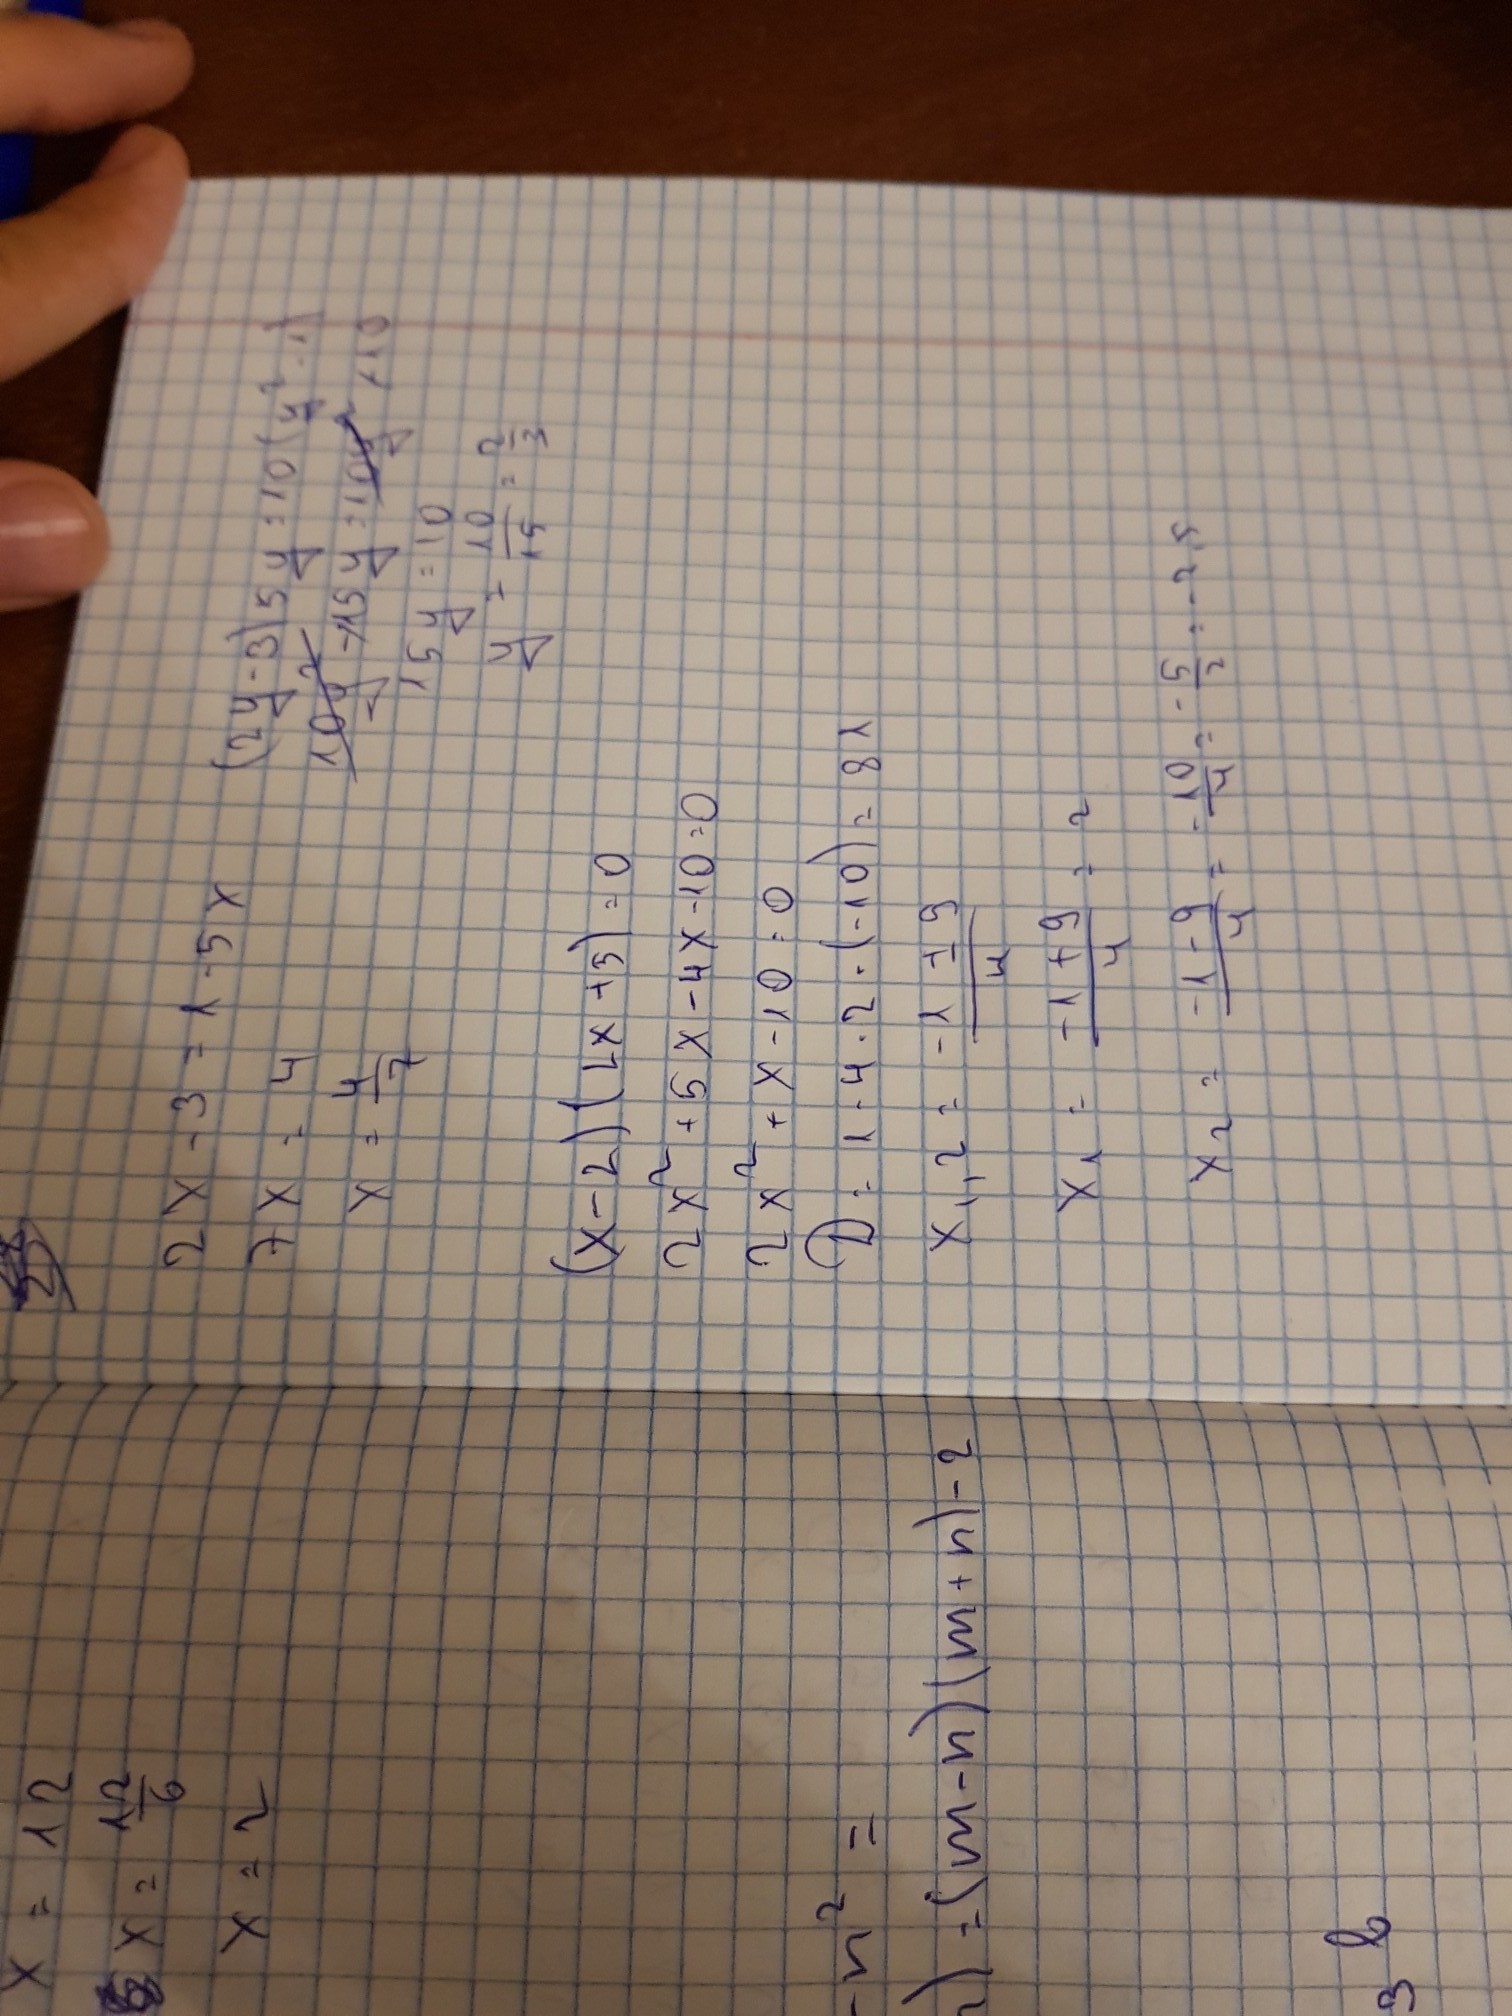 2x - 3 = 1 - 5x
7x = 4
x = 4/7
(2y - 3)5y = 10(y² - 1)
10y² - 15y = 10y² - 10
15y = 10
y = 10/15 = 2/3
(x - 2)(2x + 5) = 0
2x² + 5x - 4x - 10 = 0
2x² + x - 10 = 0
D = 1 - 4 · 2 · (-10) = 81
x1,2 = (-1 ± 9)/4
x1 = (-1 + 9)/4 = 2
x2 = (-1 - 9)/4 = -10/4 = -5/2 = -2,5
x = 12
x = 12/6
x = 2
- n² =
) = (m - n)(m + n) - 2
3 b